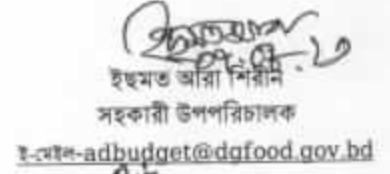 ইছমত আরা শিরীন
সহকারী উপপরিচালক
ই-মেইল-adbudget@dgfood.gov.bd